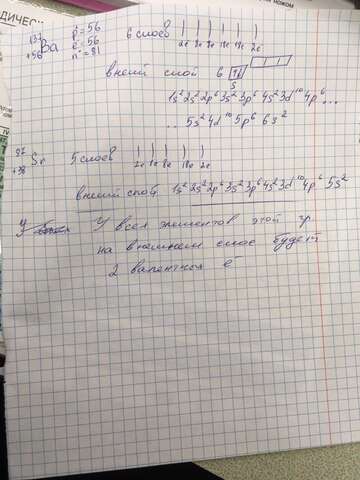 137 Ba p = 56
+56 e = 56
n = 81
6 слоев
2e 8e 18e 18e 2e
внеш слой 6 ↑↓
S
1s² 2s² 2p⁶ 3s² 3p⁶ 4s² 3d¹⁰ 4p⁶ ...
... 5s² 4d¹⁰ 5p⁶ 6s²
+38 Sr 5 слоев
2e 8e 18e 2e
внешний слой 1s² 2s² 2p⁶ 3s² 3p⁶ 4s² 3d¹⁰ 4p⁶ 5s²
У У всех элементов этой гр
на внешнем слое будет
2 валентных е